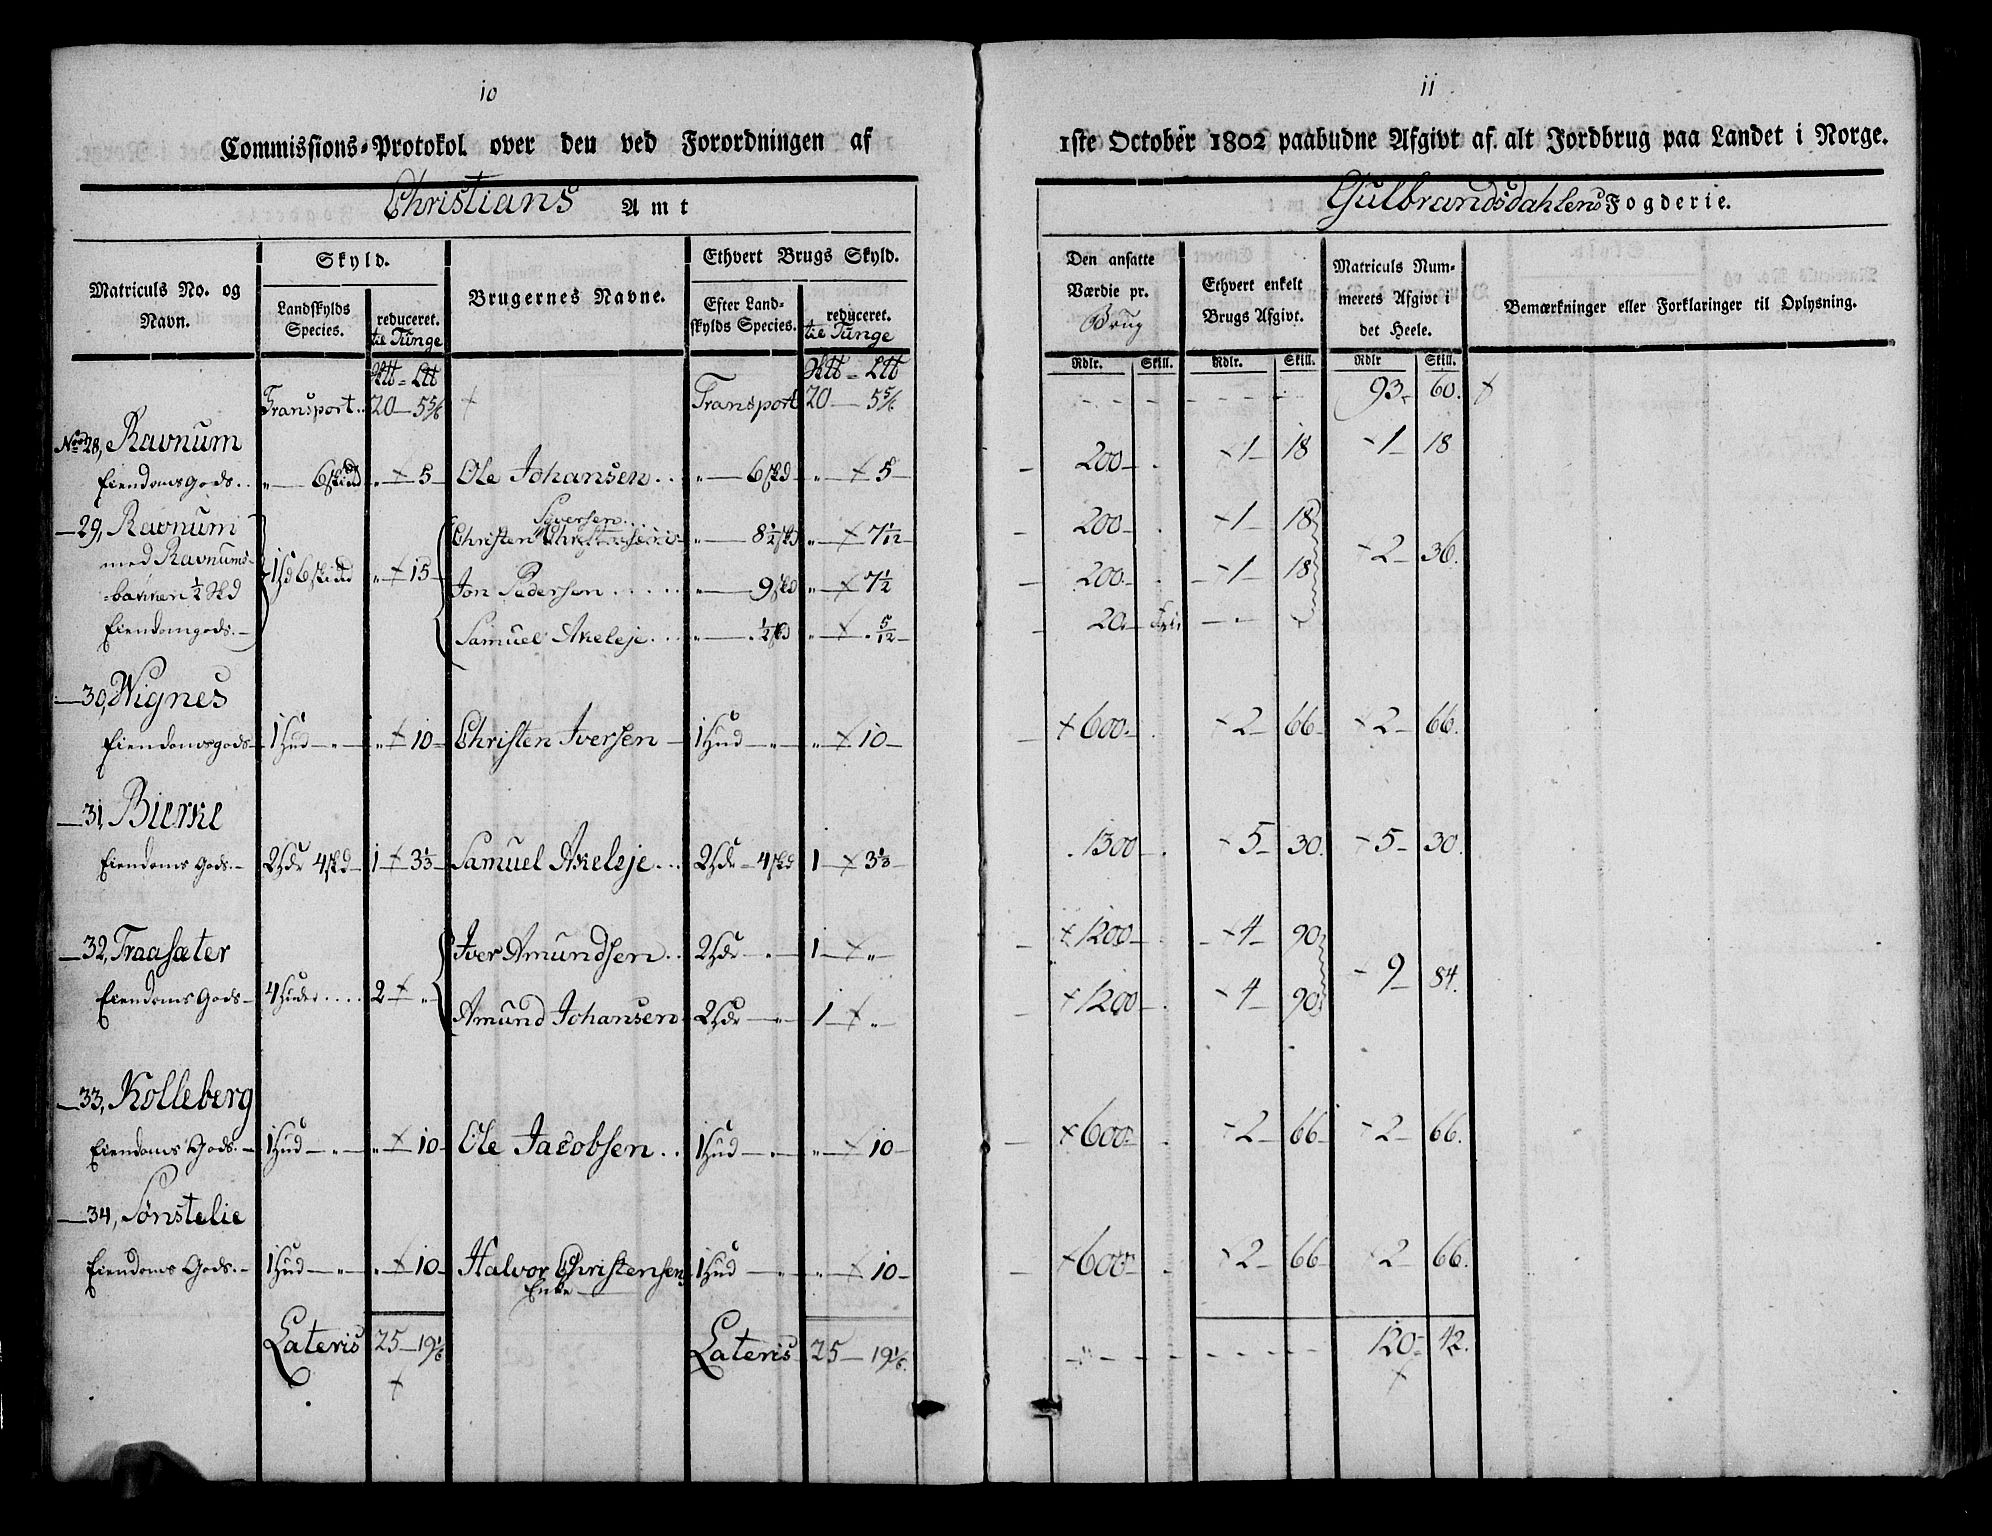 10
Commissions-Protokol over den ved Forordningen af
Christians Amt
Matriculs No. og Navn.
Skyld.
Landskylds Species.
reduceret. til Tunge
Brugernes Navne.
Ethvert Brugs Skyld.
Efter Landskylds Species.
reduceret. til Tunge
Transport.. 20 — 5 5/6 Transport 20 — 5 5/6
No. 28, Ravnum
Eiendoms Gods.. „ — 6 skind „ + 5 Ole Johansen... „ — 6 skd „ + 5
— 29, Ravnum
med Ravnums-
bakken ½ Skd
Eiendomgods. — 1 hd 6 skind „ + 15
Siversen...
Christen Christensens „ — 8½ skd „ + 7 1/12
Jon Pedersen ...... „ — 9 skd „ + 7½
Samuel Akeleje... „ — ½ skd „ + 5/12
— 30, Wignes
Eiendomsgods — 1 Hud — „ „ + 10 — Christen Iversen — 1 Hud — „ „ + 10 —
— 31, Bierke
Eiendoms Gods. — 2 Hdr 4 skd — 1 + 3⅓ — Samuel Akeleje... 2 Hdr — 4 skd 1 — + 3⅓ —
— 32, Traasæter
Eiendoms Gods — 4 Huder .... 2 + „
Iver Amundsen.. 2 Hdr — „ 1 — + „
Amund Johansen 2 Hdr — „ 1 — + „
— 33, Kolleberg
Eiendoms Gods. — 1 Hud — „ „ + 10 — Ole Jacobsen... 1 Hud — „ „ + 10 —
— 34, Sønstelie
Eiendoms Gods. — 1 Hud — „ „ + 10 — Halvor Christensens 1 Hud — „ „ + 10 —
Enke
Lateris 25 — 19 1/6 Lateris 25 — 19 1/6
11
1ste October 1802 paabudne Afgivt af alt Jordbrug paa Landet i Norge.
Gulbrandsdahlens Fogderie.
Den ansatte Værdie pr. Brug
Ethvert enkelt Brugs Afgivt.
Matriculs Nummerets Afgivt i det Heele.
Bemærkninger eller Forklaringer til Oplysning.
Rdlr. Skill. Rdlr. Skill. Rdlr Skill.
93 — 60.
200 — 1 18 1 18
200 — 1 18
2 — 36.
200 — 1 — 18
20 — Fri
600 — 2 — 66 2 — 66.
1300 — 5 — 30. 5 — 30.
1200 — 4 — 90
9 — 84.
1200 — 4 — 90
600 — 2 — 66 2 — 66.
600 — 2 — 66 2 — 66.
120 — 42.